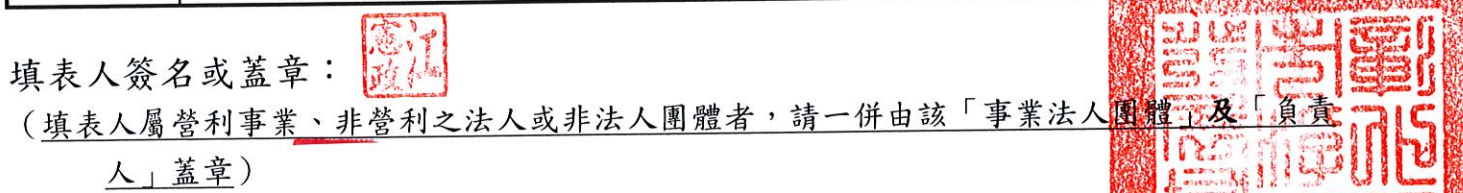 江憲政
填表人簽名或蓋章：
（填表人屬營利事業、非營利之法人或非法人團體者，請一併由該「事業法人團體」及「負責
人」蓋章）